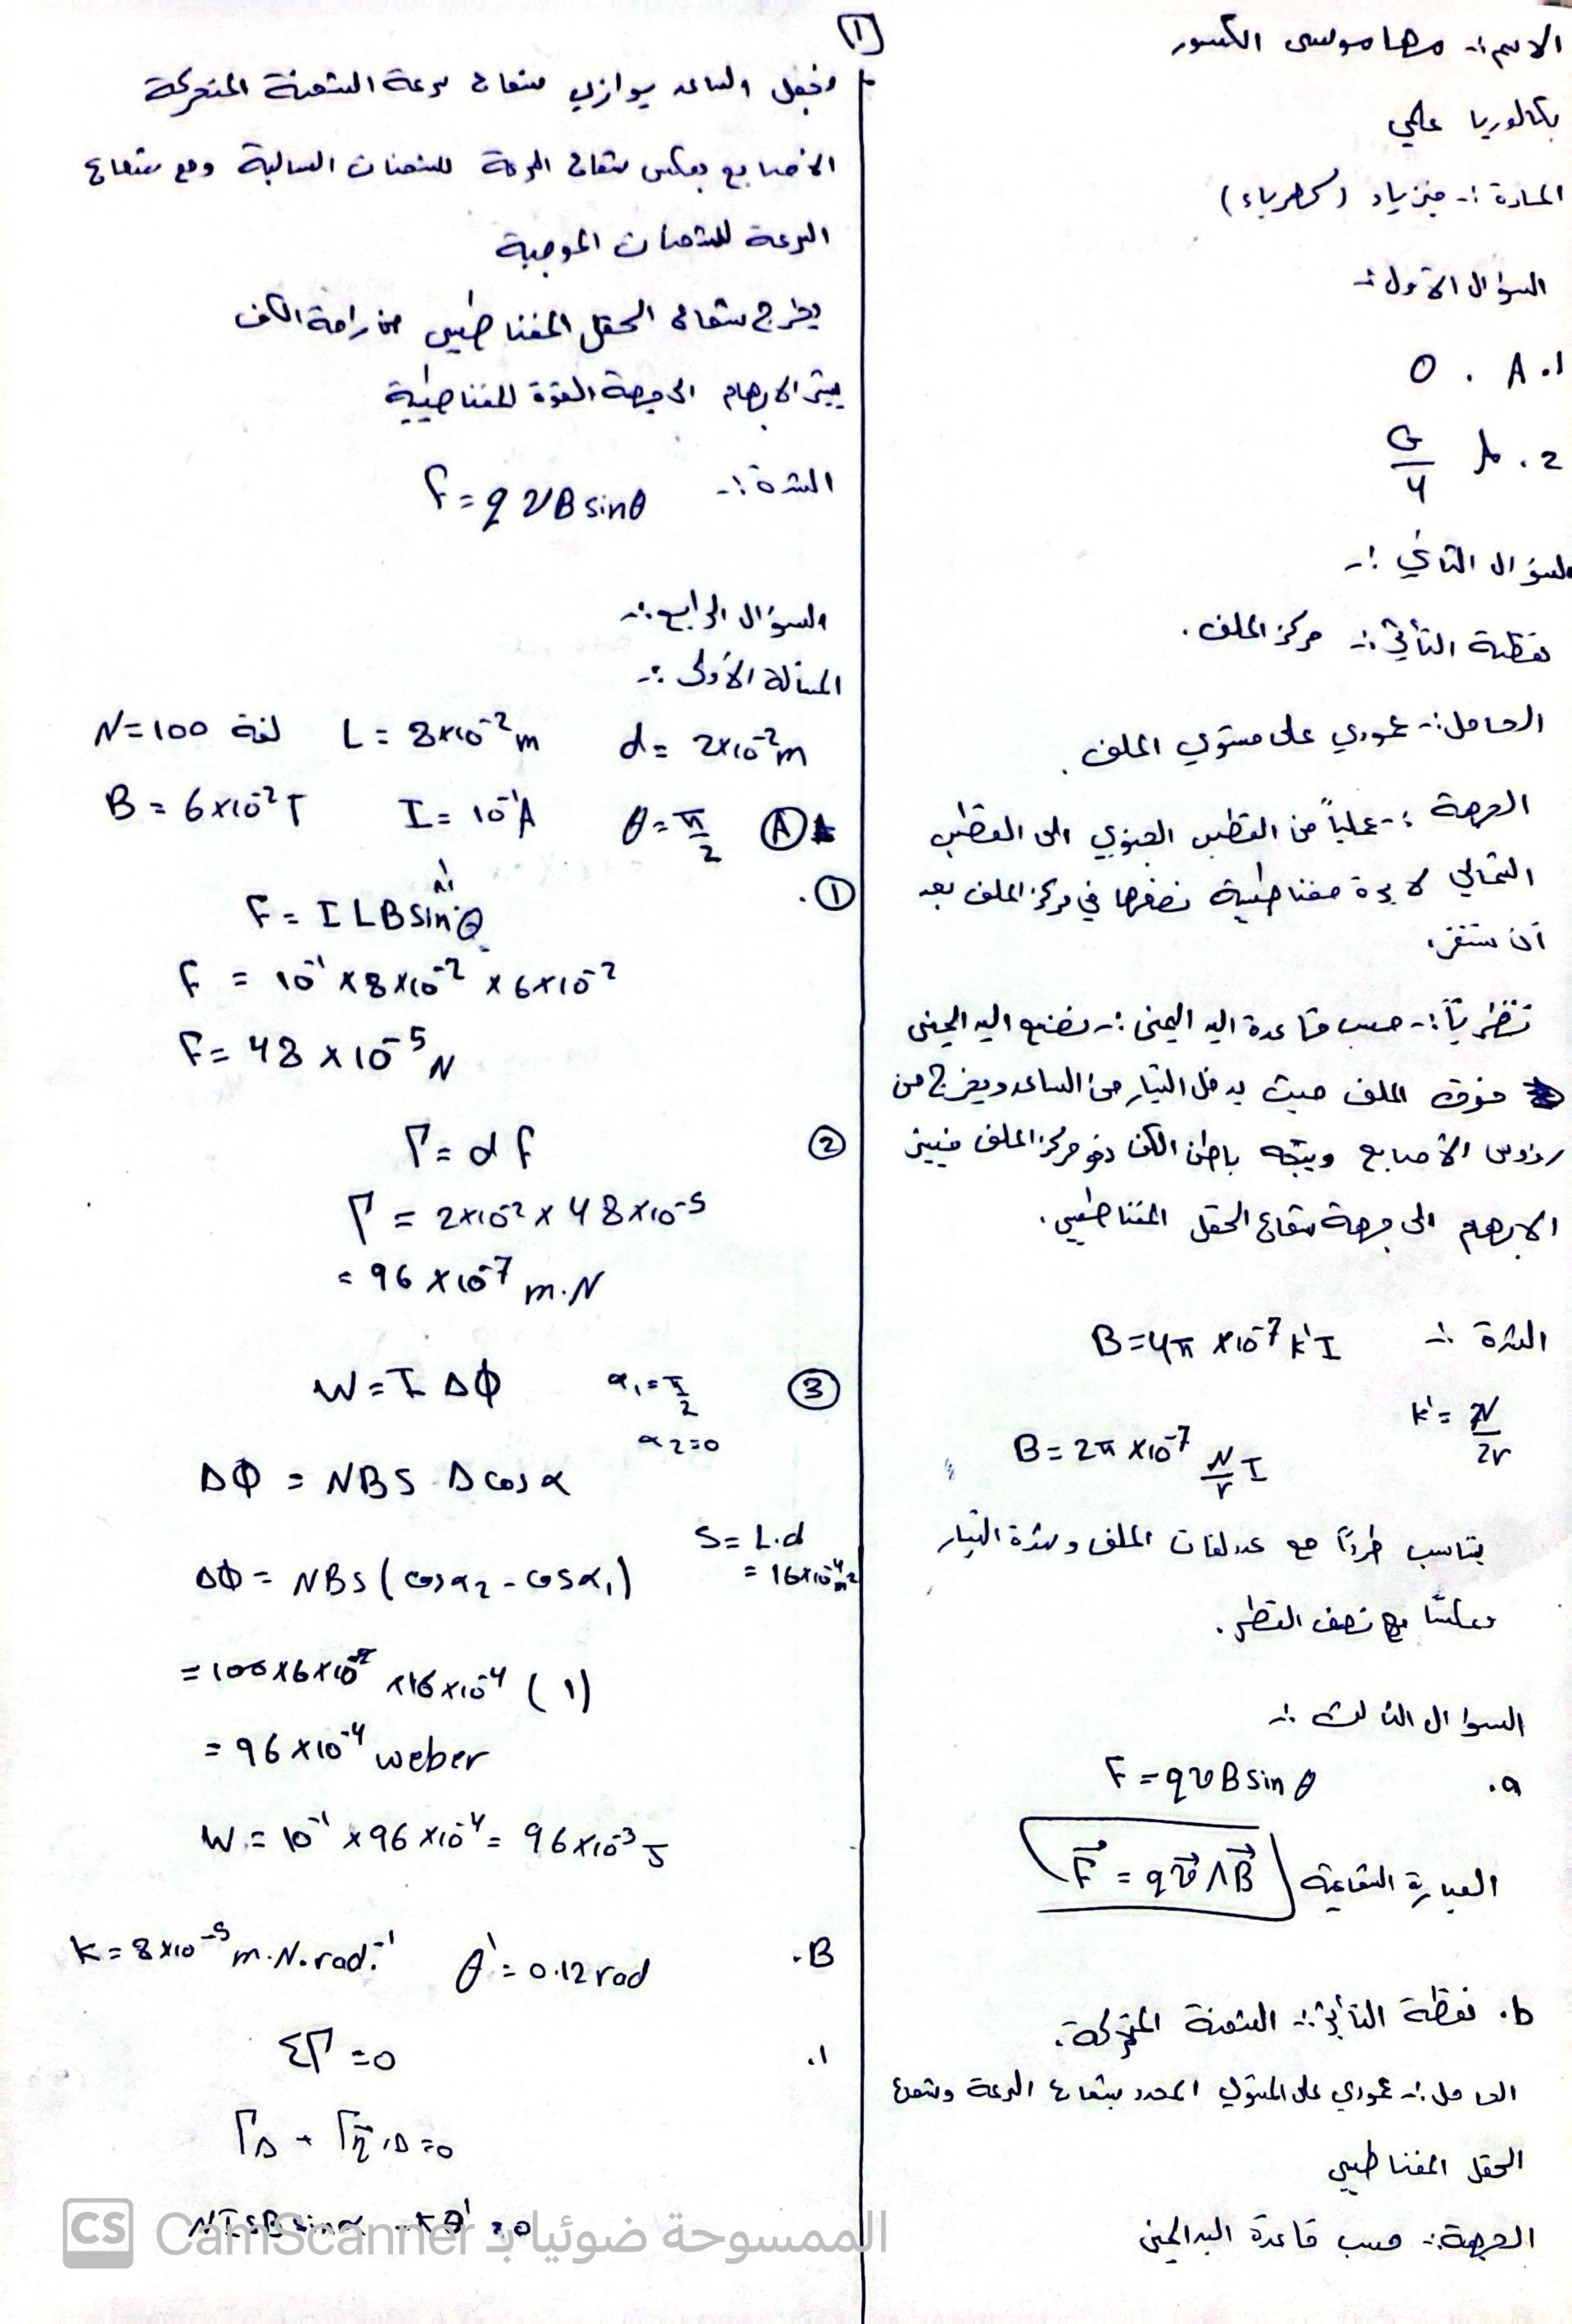 الاسم :- مها موسى الكسور
بكالوريا علمي
المادة :- فيزياء (كهرباء)
السؤال الاول :-
1. A . 0
2. A G/4
السؤال الثاني :-
نقطة التأثير :- مركز الملف .
الحامل :- عمودي على مستوي الملف .
الجهة :- عملياً من القطب الجنوبي الى القطب
الشمالي لإبرة مغناطيسية نضعها في مركز الملف بعد
أن تستقر .
نظرياً :- حسب قاعدة اليد اليمنى :- نضع اليد اليمنى
فوق الملف حيث يدخل التيار من الساعد ويخرج من
رؤوس الأصابع ويتجه باطن الكف نحو مركز الملف فيشير
الابهام الى جهة شعاع الحقل المغناطيسي .
الشدة :- B = 4π × 10⁻⁷ k' I
k' = N/2r
B = 2π × 10⁻⁷ N/r I
يتناسب طرداً مع عدد لفات الملف وشدة التيار
وعكساً مع نصف القطر .
السؤال الثالث :-
a. F = qvB sin θ
العبارة الشعاعية F⃗ = qv⃗ ∧ B⃗
b. نقطة التأثير :- الشحنة المتحركة .
الحامل :- عمودي على المستوي المحدد بشعاع السرعة وشعاع
الحقل المغناطيسي
الجهة :- حسب قاعدة اليد اليمنى
1
نجعل الساعد يوازي شعاع سرعة الشحنة المتحركة
الأصابع بعكس شعاع السرعة للشحنات السالبة ومع شعاع
السرعة للشحنات الموجبة
يخرج شعاع الحقل المغناطيسي من راحة الكف
يشير الابهام الى جهة القوة المغناطيسية
الشدة :- F = qvB sinθ
السؤال الرابع :-
المسألة الأولى :-
d = 2×10⁻² m L = 8×10⁻² m N = 100 لفة
A θ = π/2 I = 10⁻¹ A B = 6×10⁻² T
1. F = I L B sin θ
F = 10⁻¹ × 8×10⁻² × 6×10⁻²
F = 48 × 10⁻⁵ N
2 Γ = d F
Γ = 2×10⁻² × 48×10⁻⁵
= 96 × 10⁻⁷ m.N
3 W = I ΔΦ α₁ = π/2
α₂ = 0
ΔΦ = NBS Δcos α
S = L.d
= 16×10⁻⁴ m²
ΔΦ = NBS (cosα₂ - cosα₁)
= 100×6×10⁻² ×16×10⁻⁴ (1)
= 96 ×10⁻⁴ weber
W = 10⁻¹ × 96 ×10⁻⁴ = 96×10⁻³ J
B. θ' = 0.12 rad K = 8×10⁻⁵ m.N.rad⁻¹
1. ΣΓ = 0
Γ_Δ + Γ_η/Δ = 0
NISB sin α - kθ' = 0
CS CamScanner الممسوحة ضوئيا بـ